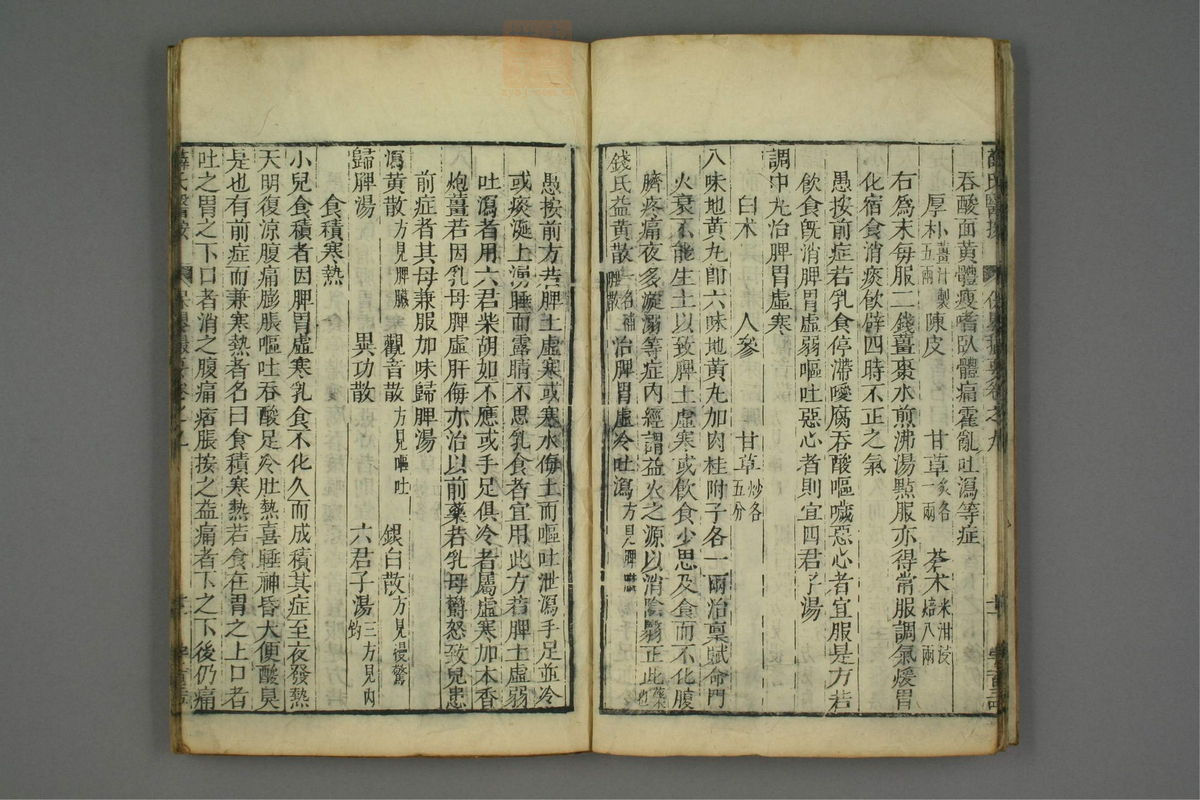 吞酸面黃體瘦嗜臥體痛霍亂吐瀉等症
厚朴薑汁製五兩 陳皮 甘草炙各一兩 蒼木米泔浸焙八兩
右爲末每服二錢薑棗水煎沸湯㸃服亦得常服調氣煖胃
化宿食消痰飲辟四時不正之氣
愚按前症若乳食停滯噯腐吞酸嘔噦惡心者宜服是方若
飲食旣消脾胃虛弱嘔吐惡心者則宜四君子湯
調中丸治脾胃虛寒
白术 人參 甘草炒各五分
八味地黃丸卽六味地黃丸加肉桂附子各一兩治稟賦命門
火衰不能生土以致脾土虛寒或飲食少思及食而不化腹
臍疼痛夜多漩溺等症內經謂益火之源以消陰翳正此藥也
錢氏益黃散一名補脾散 治脾胃虛冷吐瀉方見脾
愚按前方若脾土虛寒或寒水侮土而嘔吐泄瀉手足並冷
或痰涎上湧睡而露睛不思乳食者宜用此方若脾土虛弱
吐瀉者用六君柴胡如不應或手足俱冷者屬虛寒加木香
炮薑若因乳母脾虛肝侮亦治以前藥若乳母鬱怒致兒患
前症者其母兼服加味歸脾湯
瀉黃散方見脾臟 觀音散方見嘔吐 銀白散方見慢驚
歸脾湯 異功散 六君子湯三方見內釣
食積寒熱
小兒食積者因脾胃虛寒乳食不化久而成積其症至夜發熱
天明復涼腹痛膨脹嘔吐吞酸足冷肚熱喜睡神昏大便酸臭
是也有前症而兼寒熱者名曰食積寒熱若食在胃之上口者
吐之胃之下口者消之腹痛痞脹按之益痛者下之下後仍痛